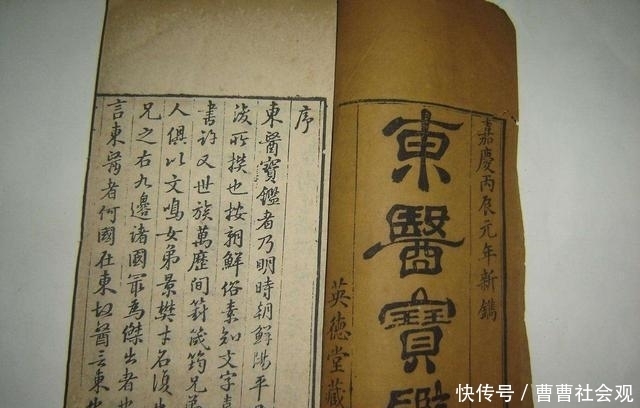 嘉慶丙辰元年新鐫
東醫寶鑑
英德堂藏
序
東醫寶鑑者乃明時朝鮮陽平
浚所撰也按朝鮮俗素知文字喜
書許又世族萬歷間篈筬筠兄弟
人俱以文鳴女弟景樊才名復出
兄之右九邊諸國㝡爲傑出者也
言東醫者何國在東故醫言東也
快传号／曹曹社会观